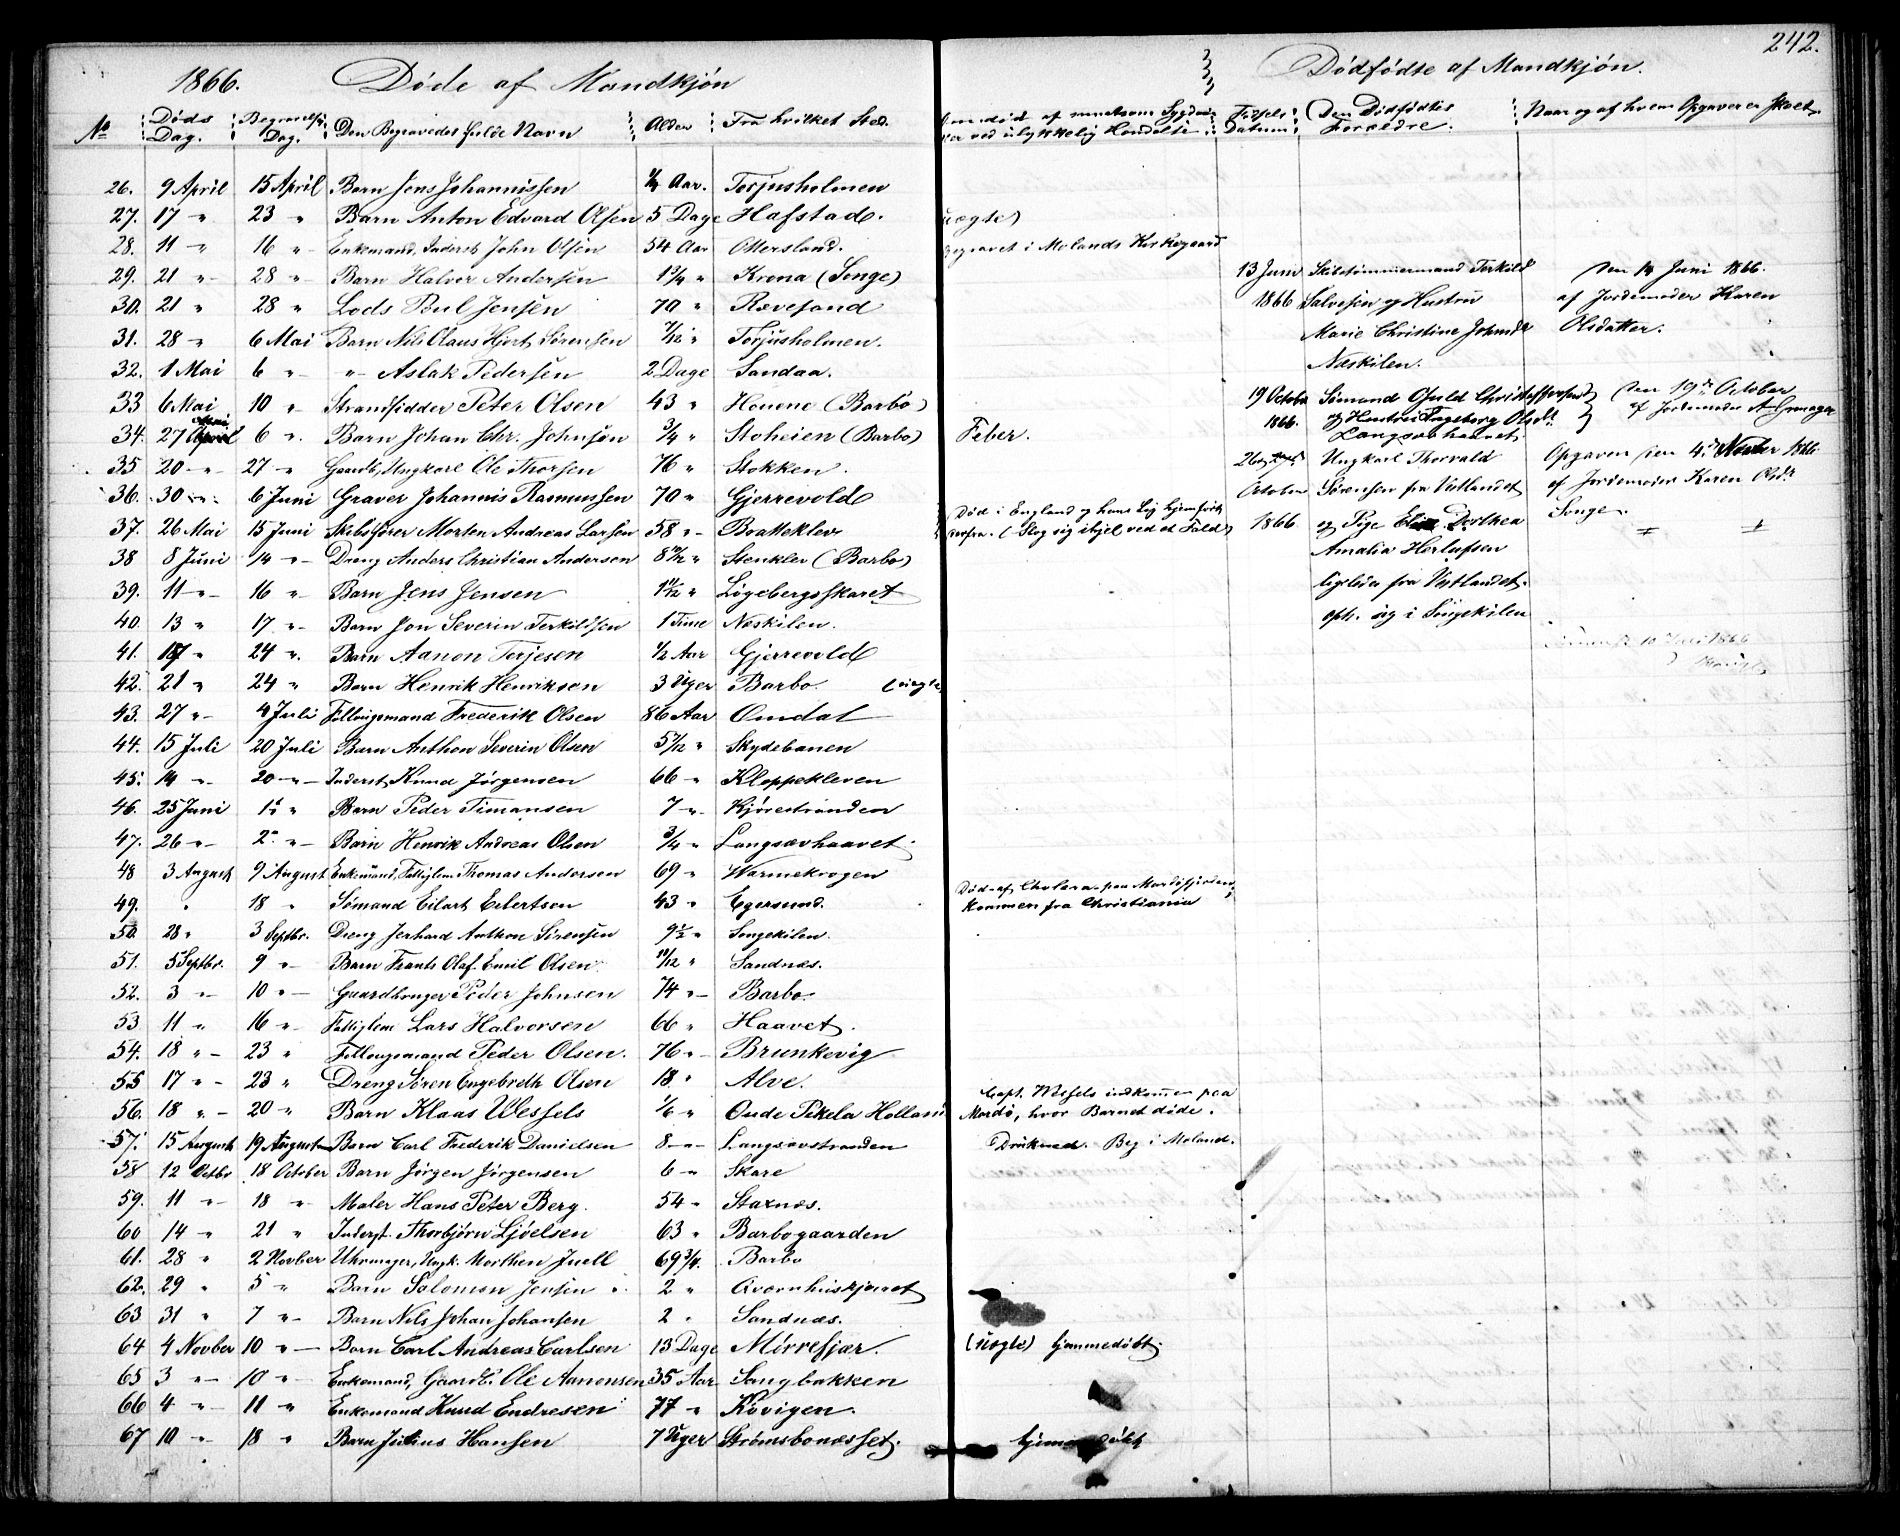 242.
1866. Døde af Mandkjøn
Dødfødte af Mandkjøn.
No Døds Dag. Begravelses Dag. Den Begravedes fulde Navn Alder Fra hvilket Sted.
Om død af smitsom Sygdom eller ved ulykkelig Hændelse Fødsels Datum Den Dødfødtes Forældre. Naar og af hvem Opgaven er skeet.
26. 9 April 15 April Barn Jens Johannissen ¼ Aar. Torjusholmen
27. 17 " 23 " Barn Anton Edvard Olsen 5 Dage Hafstad. uægte)
28. 11 " 16 " Enkemand, Inderst John Olsen 54 Aar Ottersland. Begravet i Molands Kirkegaard
29. 21 " 28 " Barn Halvor Andersen 1¼ " Krona (Songe)
30. 21 " 28 " Lods Poul Jensen 70 " Rævesand
31. 28 " 6 Mai Barn Nils Olaus Hjort Sørensen 7/12 " Torjusholmen.
32. 1 Mai 6 " " Aslak Pedersen 2 Dage Sandaa.
33 6 Mai 10 " Strandsidder Peter Olsen 43 " Houene (Barbo)
34. 27 April 6 ". Barn Johan Chr. Johnsen ¾ " Stoheien (Barbo) Feber.
35 20 " 27 " Gaardb, Ungkarl Ole Thorsen 76 " Stokken.
36. 30 " 6 Juni Graver Johannis Rasmussen 70 " Gjerrevold
37. 26 Mai 15 Juni Skibsfører Morten Andreas Larsen 58 " Boatteklev Død i England og hans Lig hjemført derfra. (Slog sig ihjel ved et Fald)
38 8 Juni 14 " Dreng Anders Christian Andersen 8 " Stenklev (Barbo)
39. 11 " 16 " Barn Jens Jensen 1 " Løgebergsskaret
40. 13 " 17 " Barn Jon Severin Terkildsen 1 Time Næskilen.
41. 17 " 24 ". Barn Aanon Terjesen ½ Aar Gjerrevold
42. 21 " 24 " Barn Henrik Henriksen 3 Uger Barbo. (uægte)
43. 27 " 4 Juli Føllougsmand Frederik Olsen 86 Aar Omdal
44. 15 Juli 20 Juli Barn Anthon Severin Olsen 5 " Skydebanen
45. 14 " 20 " Inderst, Knud Jørgensen 66 " Kloppekleven
46. 25 Juni 1st " Barn Peder Timansen 7 " Kjørestranden
47. 26 " 2n " Barn Henrik Andreas Olsen ¾ " Langsævhaavet.
48 3 August 9 August Enkemand, Fattiglem Thomas Andersen 69 " Varmekrogen
49. " 18 " Sømand Eilart Eilertsen 43 " Egersund. Død af Cholera paa Mærdøfjorden, kommen fra Christiania
50. 28 " 3 Septbr. Dreng Jerhard Anthon Sørensen 9½ " Songekilen.
51. 5 Septbr. 9 " Barn Frants Olaf Emil Olsen 11/12 " Sandnæs.
52. 3 " 10 " Gaardbruger Peder Johnsen 74 " Barbo
53 11 " 16 " Fattiglem Lars Halvorsen 66 " Haavet.
54. 18 " 23 " Føllougsmand Peder Olsen. 76 " Brunkevig
55 17 " 23 " Dreng Søren Engebreth Olsen 18 " Alve.
56. 18 " 20 " Barn Klaas Wessels " Oude Pekela Holland Capt. Wessels indkommen paa Mærdø, hvor Barnet døde.
57. 15 August 19 August Barn Carl Frederik Danielsen 8 " Langsævstranden Druknet. Beg i Moland.
58 12 Octbr 18 October Barn Jørgen Jørgensen 6 " Skare
59. 11 " 18 " Maler Hans Peter Berg. 54 " Staxnæs.
60 14 " 21 " Inderst. Thorbjørn Ljøelsen 63 " Barbogaarden
61. 28 " 2 Novber Uhrmager, Ungk. Morthen Juell 69¾. Barbo
62. 29 " 5 " Barn Salomon Jensen 2 " Qværnhuskjæret
63 31 " 7 " Barn Nils Johan Johansen 2 " Sandnæs.
64 4 Novber 10 " Barn Carl Andreas Carlsen 13 Dage Mørrefjær. (Uægte) hjemmedøbt
65 3 " 10 " Enkemand, Gaardb. Ole Aanonsen 35 Aar Sangbakken
66 4 " 11 " Enkemand Knud Endresen 77 " Kovigen.
67 10 " 18 " Barn Julius Hansen 7 Uger Strømsbonæsset.
13 Juni 1866 Skibstømmermand Terkild
Salvesen og Hustru
Marie Christine Johnsd
Næskilen.
Den 14 Juni 1866.
af Jordemoder Karen
Olsdatter.
19 October 1866. Sømand Guld Christoffersen
og Hustru Ingeborg Olsdr.
Langsævhaavet
Den 19de October
af Jordemoder
October 1866 Ungkarl Thorvald
Sørensen fra Vestlandet
og Pige Dorthea
Amalia Herlufsen
ligeledes fra Vestlandet.
oph. sig i Songekilen
Opgaven den 4de
af Jordemoder Karen Olsdr
Songe.